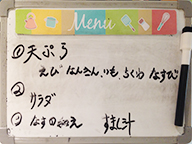 Menu
① 天ぷら
えび なんきん いも ちくわ なすび
②
サラダ
③ なすのあえ すまし汁